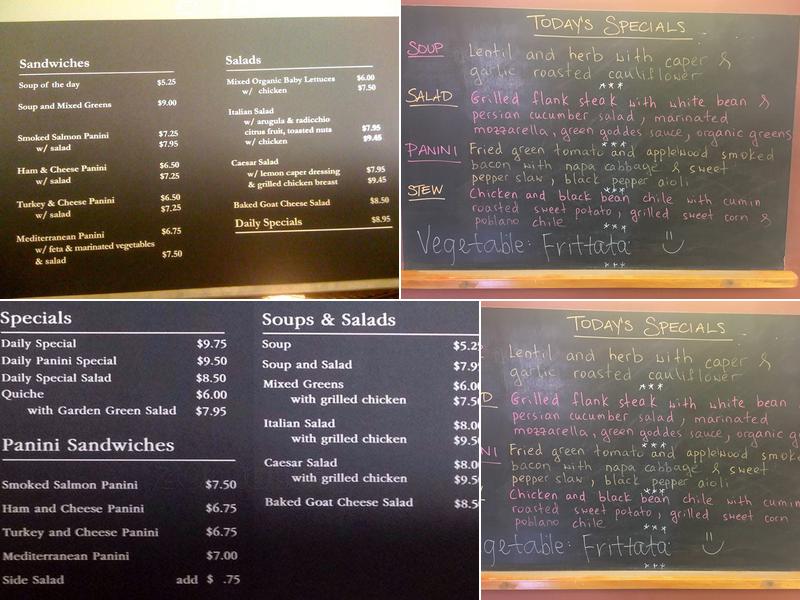 Sandwiches
Soup of the day $5.25
Soup and Mixed Greens $9.00
Smoked Salmon Panini $7.25
w/ salad $7.95
Ham & Cheese Panini $6.50
w/ salad $7.25
Turkey & Cheese Panini $6.50
w/ salad $7.25
Mediterranean Panini $6.75
w/ feta & marinated vegetables
& salad $7.50
Salads
Mixed Organic Baby Lettuces $6.00
w/ chicken $7.50
Italian Salad
w/ arugula & radicchio
citrus fruit, toasted nuts $7.95
w/ chicken $9.45
Caesar Salad
w/ lemon caper dressing $7.95
& grilled chicken breast $9.45
Baked Goat Cheese Salad $8.50
Daily Specials $8.95
TODAY'S SPECIALS
SOUP Lentil and herb with caper &
garlic roasted cauliflower
***
SALAD Grilled flank steak with white bean &
persian cucumber salad, marinated
mozzarella, green goddes sauce, organic greens
***
PANINI Fried green tomato and applewood smoked
bacon with napa cabbage & sweet
pepper slaw, black pepper aioli
***
STEW Chicken and black bean chile with cumin
roasted sweet potato, grilled sweet corn &
poblano chile
***
Vegetable: Frittata
***
Specials
Daily Special $9.75
Daily Panini Special $9.50
Daily Special Salad $8.50
Quiche $6.00
with Garden Green Salad $7.95
Panini Sandwiches
Smoked Salmon Panini $7.50
Ham and Cheese Panini $6.75
Turkey and Cheese Panini $6.75
Mediterranean Panini $7.00
Side Salad add $ .75
Soups & Salads
Soup $5.2
Soup and Salad $7.9
Mixed Greens $6.0
with grilled chicken $7.5
Italian Salad $8.0
with grilled chicken $9.5
Caesar Salad $8.0
with grilled chicken $9.5
Baked Goat Cheese Salad $8.5
TODAY'S SPECIALS
Lentil and herb with caper &
garlic roasted cauliflower
***
D Grilled flank steak with white bean
persian cucumber salad, marinated
mozzarella, green goddes sauce, organic g
***
NI Fried green tomato and applewood smoke
bacon with napa cabbage & sweet
pepper slaw, black pepper aioli
***
Chicken and black bean chile with cumin
roasted sweet potato, grilled sweet corn
poblano chile
***
getable: Frittata
***